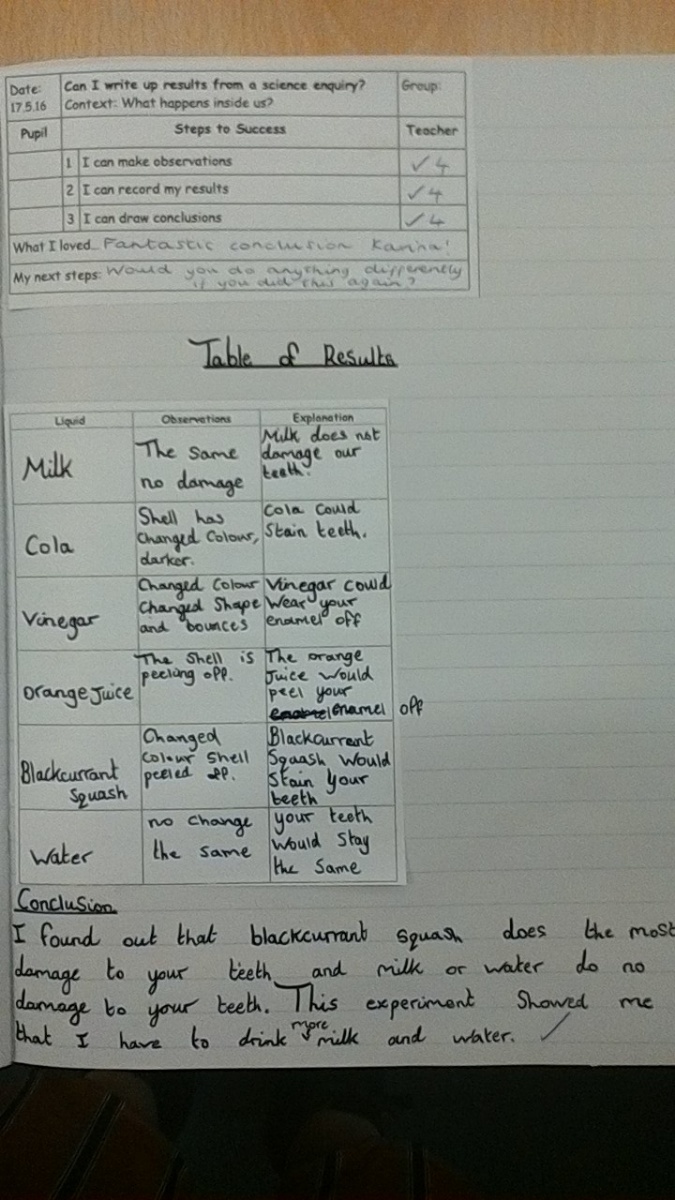 Date: Can I write up results from a science enquiry? Group:
17.5.16 Context: What happens inside us?
Pupil Steps to Success Teacher
1 I can make observations ✓ 4
2 I can record my results ✓ 4
3 I can draw conclusions ✓ 4
What I loved... Fantastic conclusion Karina!
My next steps: Would you do anything differently
if you did this again?
Table of Results
Liquid Observations Explanation
Milk
The Same
no damage
Milk does not
damage our
teeth.
Cola
Shell has
Changed Colour,
darker.
Cola Could
Stain teeth.
Vinegar
Changed Colour
Changed Shape
and bounces
Vinegar Could
Wear your
enamel off
Orange Juice
The Shell is
peeling off.
The orange
Juice Would
peel your
enamel off
Blackcurrant
Squash
Changed
Colour Shell
peeled off.
Blackcurrent
Sqaash Would
Stain your
teeth
Water
no change
the same
your teeth
Would Stay
the Same
Conclusion
I found out that blackcurrant squash does the most
damage to your teeth and milk or water do no
damage to your teeth. This experiment Showed me
that I have to drink more milk and water. ✓